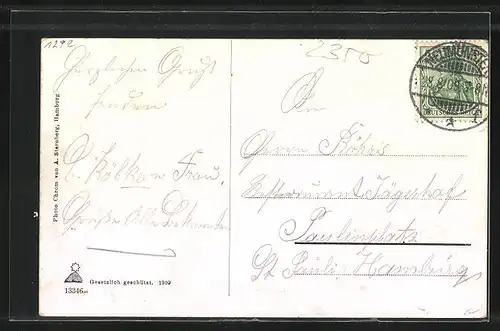 1292
2350
Herzlichen Gruß
senden
Frau.
Grüße Alle Bekannten
An
Herrn
Restaurant Jägerhof
Paulinplatz
St. Pauli. Hamburg
NEUMÜNSTER
DEUTSCHES REICH
Photo Chrom von A. Sternberg, Hamburg
Gesetzlich geschützt. 1909
13346